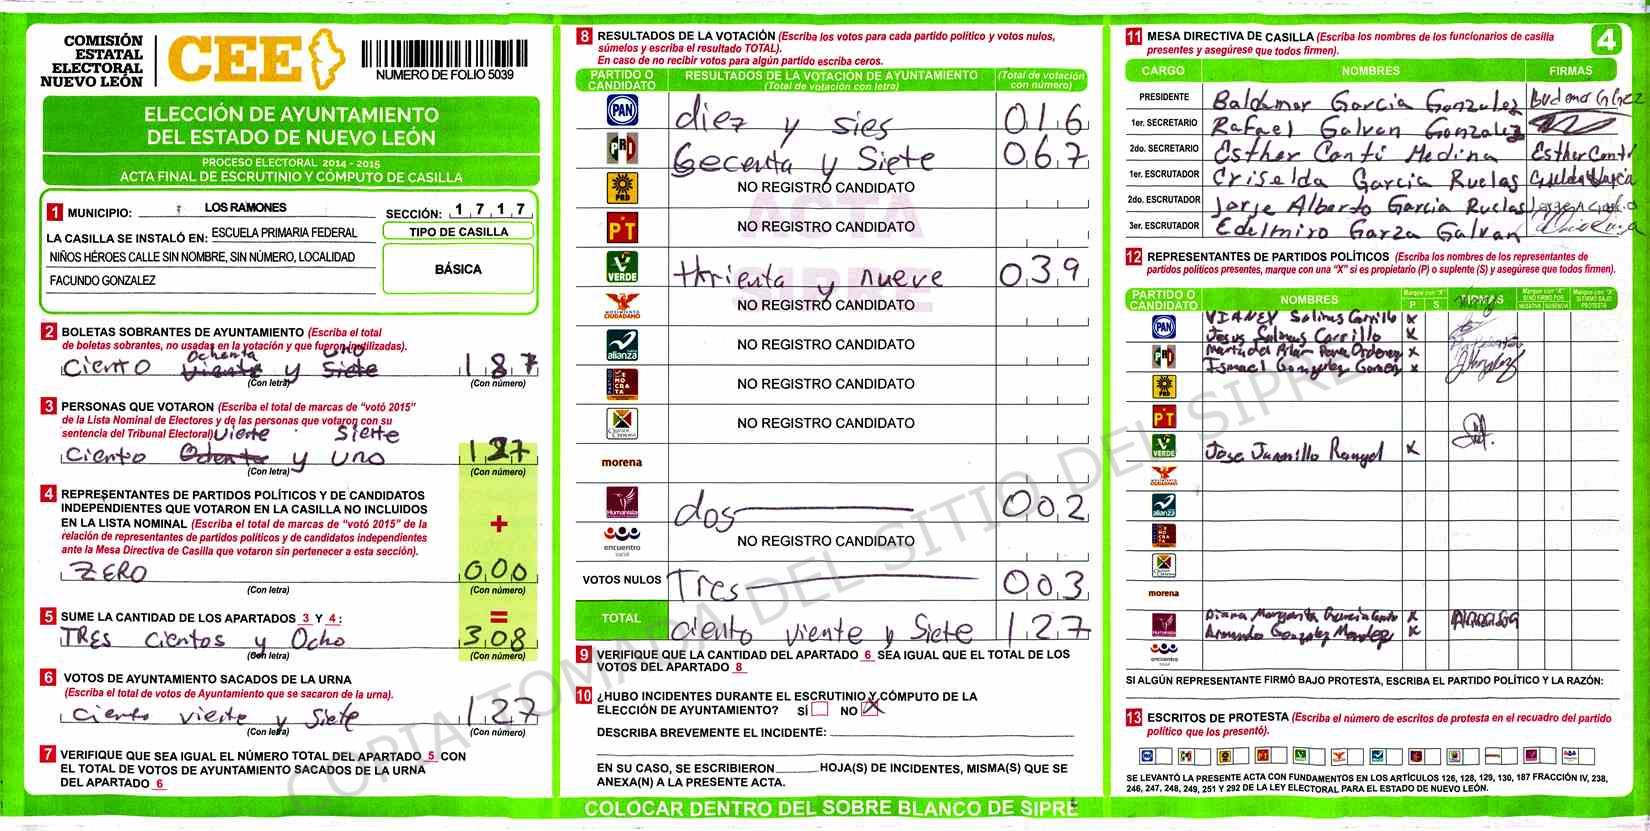 COMISIÓN
ESTATAL
ELECTORAL
NUEVO LEÓN
CEE
NUMERO DE FOLIO 5039
ELECCIÓN DE AYUNTAMIENTO
DEL ESTADO DE NUEVO LEÓN
PROCESO ELECTORAL 2014 - 2015
ACTA FINAL DE ESCRUTINIO Y CÓMPUTO DE CASILLA
1 MUNICIPIO: LOS RAMONES SECCIÓN: 1 7 1 7
LA CASILLA SE INSTALÓ EN: ESCUELA PRIMARIA FEDERAL
NIÑOS HÉROES CALLE SIN NOMBRE, SIN NÚMERO, LOCALIDAD
FACUNDO GONZALEZ
TIPO DE CASILLA
BÁSICA
2 BOLETAS SOBRANTES DE AYUNTAMIENTO (Escriba el total
de boletas sobrantes, no usadas en la votación y que fueron inutilizadas).
Ochenta UNO
Ciento Viente y Siete 187
(Con letra) (Con número)
3 PERSONAS QUE VOTARON (Escriba el total de marcas de "votó 2015"
de la Lista Nominal de Electores y de las personas que votaron con su
sentencia del Tribunal Electoral) Viente Siete
Ciento Ochenta y UNO 127
(Con letra) (Con número)
4 REPRESENTANTES DE PARTIDOS POLÍTICOS Y DE CANDIDATOS
INDEPENDIENTES QUE VOTARON EN LA CASILLA NO INCLUIDOS
EN LA LISTA NOMINAL (Escriba el total de marcas de "votó 2015" de la
relación de representantes de partidos políticos y de candidatos independientes
ante la Mesa Directiva de Casilla que votaron sin pertenecer a esta sección).
+
ZERO 000
(Con letra) (Con número)
5 SUME LA CANTIDAD DE LOS APARTADOS 3 Y 4: =
TRES Cientos y Ocho 308
(Con letra) (Con número)
6 VOTOS DE AYUNTAMIENTO SACADOS DE LA URNA
(Escriba el total de votos de Ayuntamiento que se sacaron de la urna).
Ciento viente y Siete 127
(Con letra) (Con número)
7 VERIFIQUE QUE SEA IGUAL EL NÚMERO TOTAL DEL APARTADO 5 CON
EL TOTAL DE VOTOS DE AYUNTAMIENTO SACADOS DE LA URNA
DEL APARTADO 6
8 RESULTADOS DE LA VOTACIÓN (Escriba los votos para cada partido político y votos nulos,
súmelos y escriba el resultado TOTAL).
En caso de no recibir votos para algún partido escriba ceros.
PARTIDO O CANDIDATO RESULTADOS DE LA VOTACIÓN DE AYUNTAMIENTO (Total de votación con letra) (Total de votación con número)
PAN diez y sies 016
PRD Gecenta y Siete 067
PRD NO REGISTRÓ CANDIDATO
PT NO REGISTRO CANDIDATO
VERDE thrienta y nueve 039
MOVIMIENTO CIUDADANO NO REGISTRO CANDIDATO
alianza NO REGISTRO CANDIDATO
NO REGISTRO CANDIDATO
NO REGISTRO CANDIDATO
morena
Humanista dos 002
encuentro social NO REGISTRO CANDIDATO
VOTOS NULOS Tres 003
TOTAL ciento viente y Siete 127
9 VERIFIQUE QUE LA CANTIDAD DEL APARTADO 6 SEA IGUAL QUE EL TOTAL DE LOS
VOTOS DEL APARTADO 8
10 ¿HUBO INCIDENTES DURANTE EL ESCRUTINIO Y CÓMPUTO DE LA
ELECCIÓN DE AYUNTAMIENTO? SÍ NO X
DESCRIBA BREVEMENTE EL INCIDENTE:
EN SU CASO, SE ESCRIBIERON HOJA(S) DE INCIDENTES, MISMA(S) QUE SE
ANEXA(N) A LA PRESENTE ACTA.
COLOCAR DENTRO DEL SOBRE BLANCO DE SIPRE
ACTA
SIPRE
COPIA TOMADA DEL SITIO DEL SIPRE
11 MESA DIRECTIVA DE CASILLA (Escriba los nombres de los funcionarios de casilla
presentes y asegúrese que todos firmen).
4
CARGO NOMBRES FIRMAS
PRESIDENTE Baldemar García Gonzalez
1er. SECRETARIO Rafael Galvan Gonzalez
2do. SECRETARIO Esther Cantú Medina Esther Cantú
1er. ESCRUTADOR Criselda Garcia Ruelas
2do. ESCRUTADOR Jorge Alberto Garcia Ruelas
3er. ESCRUTADOR Edelmiro Garza Galvan
12 REPRESENTANTES DE PARTIDOS POLÍTICOS (Escriba los nombres de los representantes de
partidos políticos presentes, marque con una "X" si es propietario (P) o suplente (S) y asegúrese que todos firmen).
PARTIDO O CANDIDATO NOMBRES Marque con "X" P S FIRMAS
PAN VIANEY Salinas Carrillo X
Jesus Salinas Carrillo X
PRD X
Ismael Gonzalez Gomez X
PRD
PT
VERDE Jose Jaramillo Rangel X
alianza
morena
Humanista Diana Margarita X
Armando Gonzalez Mendez X
encuentro social
SI ALGÚN REPRESENTANTE FIRMÓ BAJO PROTESTA, ESCRIBA EL PARTIDO POLÍTICO Y LA RAZÓN:
13 ESCRITOS DE PROTESTA (Escriba el número de escritos de protesta en el recuadro del partido
político que los presentó).
SE LEVANTÓ LA PRESENTE ACTA CON FUNDAMENTOS EN LOS ARTÍCULOS 126, 128, 129, 130, 187 FRACCIÓN IV, 238,
246, 247, 248, 249, 251 Y 292 DE LA LEY ELECTORAL PARA EL ESTADO DE NUEVO LEÓN.